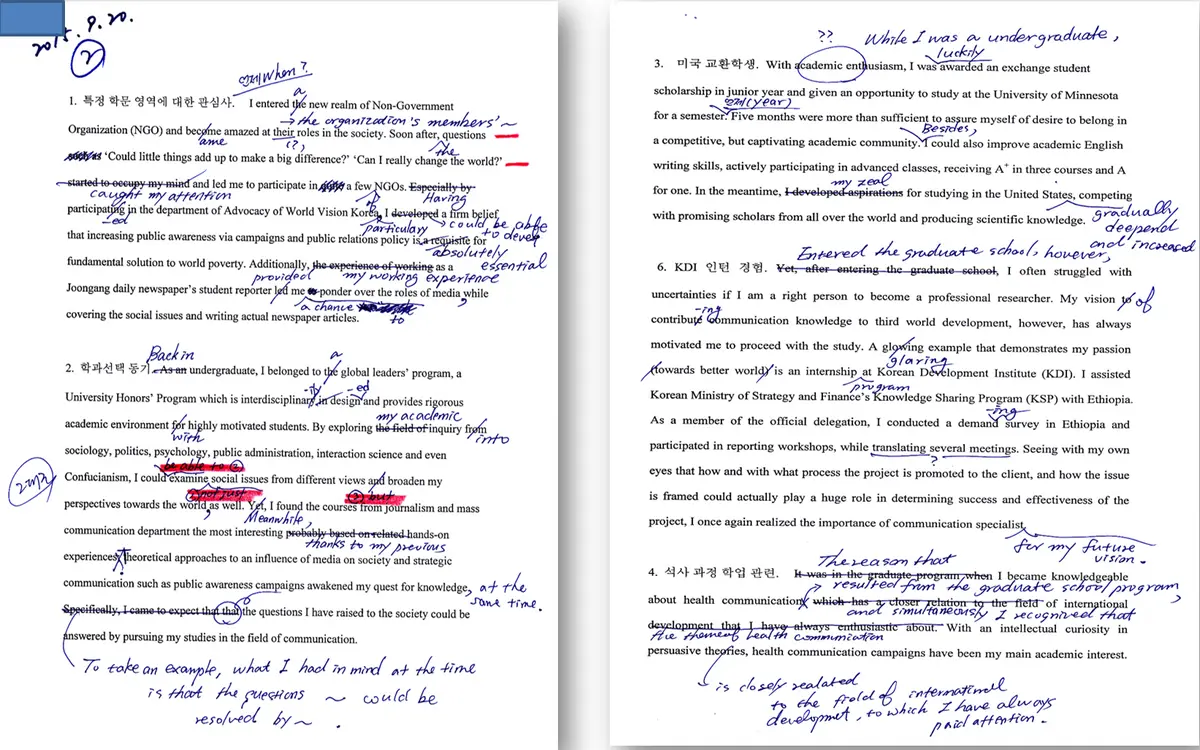 2015. 9. 20.
②
언제 When?
a
1. 특정 학문 영역에 대한 관심사. I entered the new realm of Non-Government
→ the organization's members' ~
Organization (NGO) and become amazed at their roles in the society. Soon after, questions
ame (?) the
'Could little things add up to make a big difference?' 'Can I really change the world?'
started to occupy my mind and led me to participate in a few NGOs. Especially by
caught my attention of Having
participating in the department of Advocacy of World Vision Korea, I developed a firm belief
-ed particulary → could be able to
that increasing public awareness via campaigns and public relations policy is a requisite for
absolutely essential
fundamental solution to world poverty. Additionally, the experience of working as a
provided my working experience
Joongang daily newspaper's student reporter led me to ponder over the roles of media, while
a chance to
covering the social issues and writing actual newspaper articles.
Back in a
2. 학과선택 동기. As an undergraduate, I belonged to the global leaders' program, a
-ity -ed
University Honors' Program which is interdisciplinary in design and provides rigorous
my academic
academic environment for highly motivated students. By exploring the field of inquiry from
with into
sociology, politics, psychology, public administration, interaction science and even
be able to ②
Confucianism, I could examine social issues from different views and broaden my
① not just ② but
perspectives towards the world, as well. Yet, I found the courses from journalism and mass
Meanwhile,
communication department the most interesting probably based on related hands-on
thanks to my previous
experiences. Theoretical approaches to an influence of media on society and strategic
communication such as public awareness campaigns awakened my quest for knowledge, at the
same time.
Specifically, I came to expect that that the questions I have raised to the society could be
answered by pursuing my studies in the field of communication.
To take an example, what I had in mind at the time
is that the questions ~ could be
resolved by ~ .
?? While I was a undergraduate,
luckily
3. 미국 교환학생. With academic enthusiasm, I was awarded an exchange student
scholarship in junior year and given an opportunity to study at the University of Minnesota
언제(year)
for a semester. Five months were more than sufficient to assure myself of desire to belong in
Besides,
a competitive, but captivating academic community. I could also improve academic English
writing skills, actively participating in advanced classes, receiving A+ in three courses and A
my zeal
for one. In the meantime, I developed aspirations for studying in the United States, competing
with promising scholars from all over the world and producing scientific knowledge. gradually
deepend
and increased
Entered the graduate school, however,
6. KDI 인턴 경험. Yet, after entering the graduate school, I often struggled with
uncertainties if I am a right person to become a professional researcher. My vision to of
-ing
contribute communication knowledge to third world development, however, has always
motivated me to proceed with the study. A glowing example that demonstrates my passion
glaring
(towards better world) is an internship at Korean Development Institute (KDI). I assisted
program
Korean Ministry of Strategy and Finance's Knowledge Sharing Program (KSP) with Ethiopia.
-ing
As a member of the official delegation, I conducted a demand survey in Ethiopia and
participated in reporting workshops, while translating several meetings. Seeing with my own
?
eyes that how and with what process the project is promoted to the client, and how the issue
is framed could actually play a huge role in determining success and effectiveness of the
project, I once again realized the importance of communication specialist.
for my future
vision.
The reason that
4. 석사 과정 학업 관련. It was in the graduate program when I became knowledgeable
→ resulted from the graduate school program,
about health communication, which has a closer relation to the field of international
and simultaneously I recognized that
development that I have always enthusiastic about. With an intellectual curiosity in
the theme of health communication
persuasive theories, health communication campaigns have been my main academic interest.
is closely realated
to the field of international
developmet, to which I have always
paid attention.